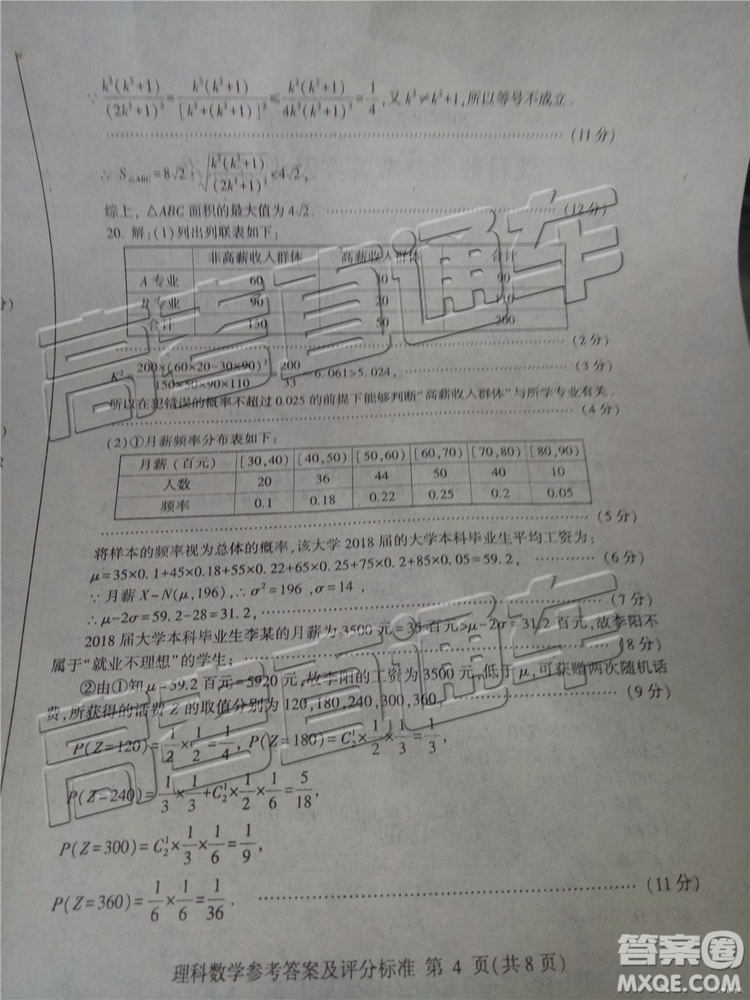 ∵ k³(k³+1)/(2k³+1)² = k³(k³+1)/[k³+(k³+1)]² ≤ k³(k³+1)/4k³(k³+1) = 1/4, 又 k³≠k³+1, 所以等号不成立.
(11分)
∴ S△ABC = 8√2 · √(k³(k³+1)/(2k³+1)²) ≤ 4√2,
综上, △ABC 面积的最大值为 4√2. (12分)
20. 解:(1)列出列联表如下:
非高薪收入群体 高薪收入群体 合计
A 专业 60 30 90
B 专业 90 20 110
合计 150 50 200
(2分)
K² = 200×(60×20-30×90)²/150×50×90×110 = 200/33 = 6.061>5.024, (3分)
所以在犯错误的概率不超过 0.025 的前提下能够判断“高薪收入群体”与所学专业有关.
(4分)
(2)①月薪频率分布表如下:
月薪(百元) [30,40) [40,50) [50,60) [60,70) [70,80) [80,90)
人数 20 36 44 50 40 10
频率 0.1 0.18 0.22 0.25 0.2 0.05
(5分)
将样本的频率视为总体的概率,该大学 2018 届的大学本科毕业生平均工资为:
μ=35×0.1+45×0.18+55×0.22+65×0.25+75×0.2+85×0.05=59.2, (6分)
∵ 月薪 X~N(μ,196),∴ σ²=196,σ=14,
∴ μ-2σ=59.2-28=31.2, (7分)
2018 届大学本科毕业生李某的月薪为 3500 元=35 百元>μ-2σ=31.2 百元,故李阳不
属于“就业不理想”的学生; (8分)
②由①知 μ=59.2 百元=5920 元,故李阳的工资为 3500 元,低于 μ,可获赠两次随机话
费,所获得的话费 Z 的取值分别为 120,180,240,300,360, (9分)
P(Z=120)=1/2×1/2=1/4, P(Z=180)=C₂¹×1/2×1/3=1/3,
P(Z=240)=1/3×1/3+C₂¹×1/2×1/6=5/18,
P(Z=300)=C₂¹×1/3×1/6=1/9,
P(Z=360)=1/6×1/6=1/36. (11分)
理科数学参考答案及评分标准 第 4 页(共8页)
高考直通车
高考直通车
答案圈
MXQE.COM